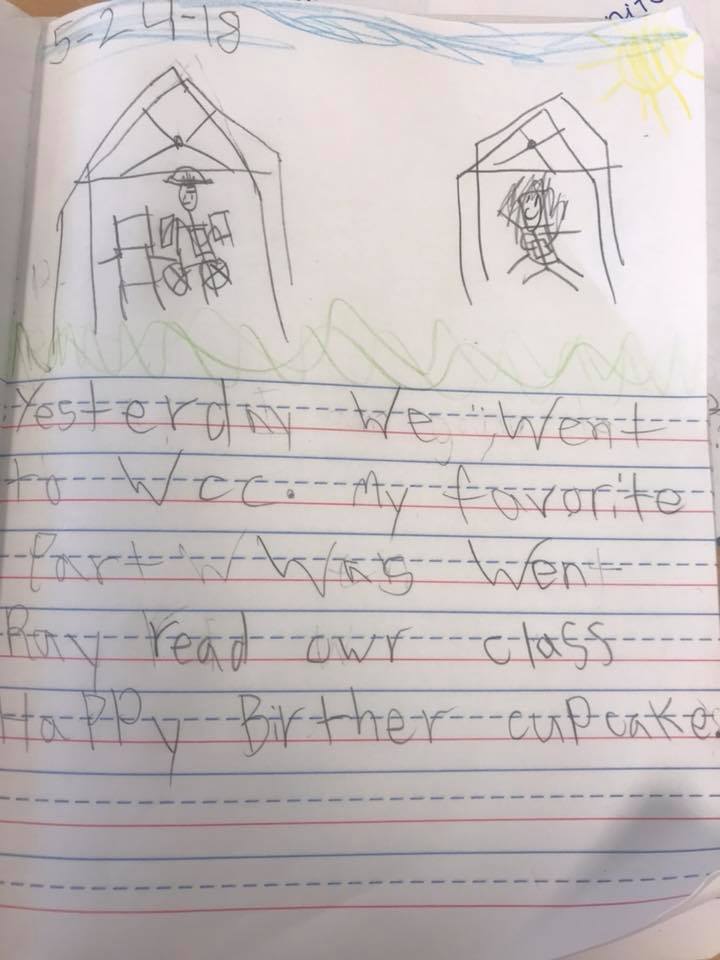 5-24-18
Yesterday We Went
to Wcc. My favorite
Part W Was Went
Ray read owr class
Happy Birther cupcake.